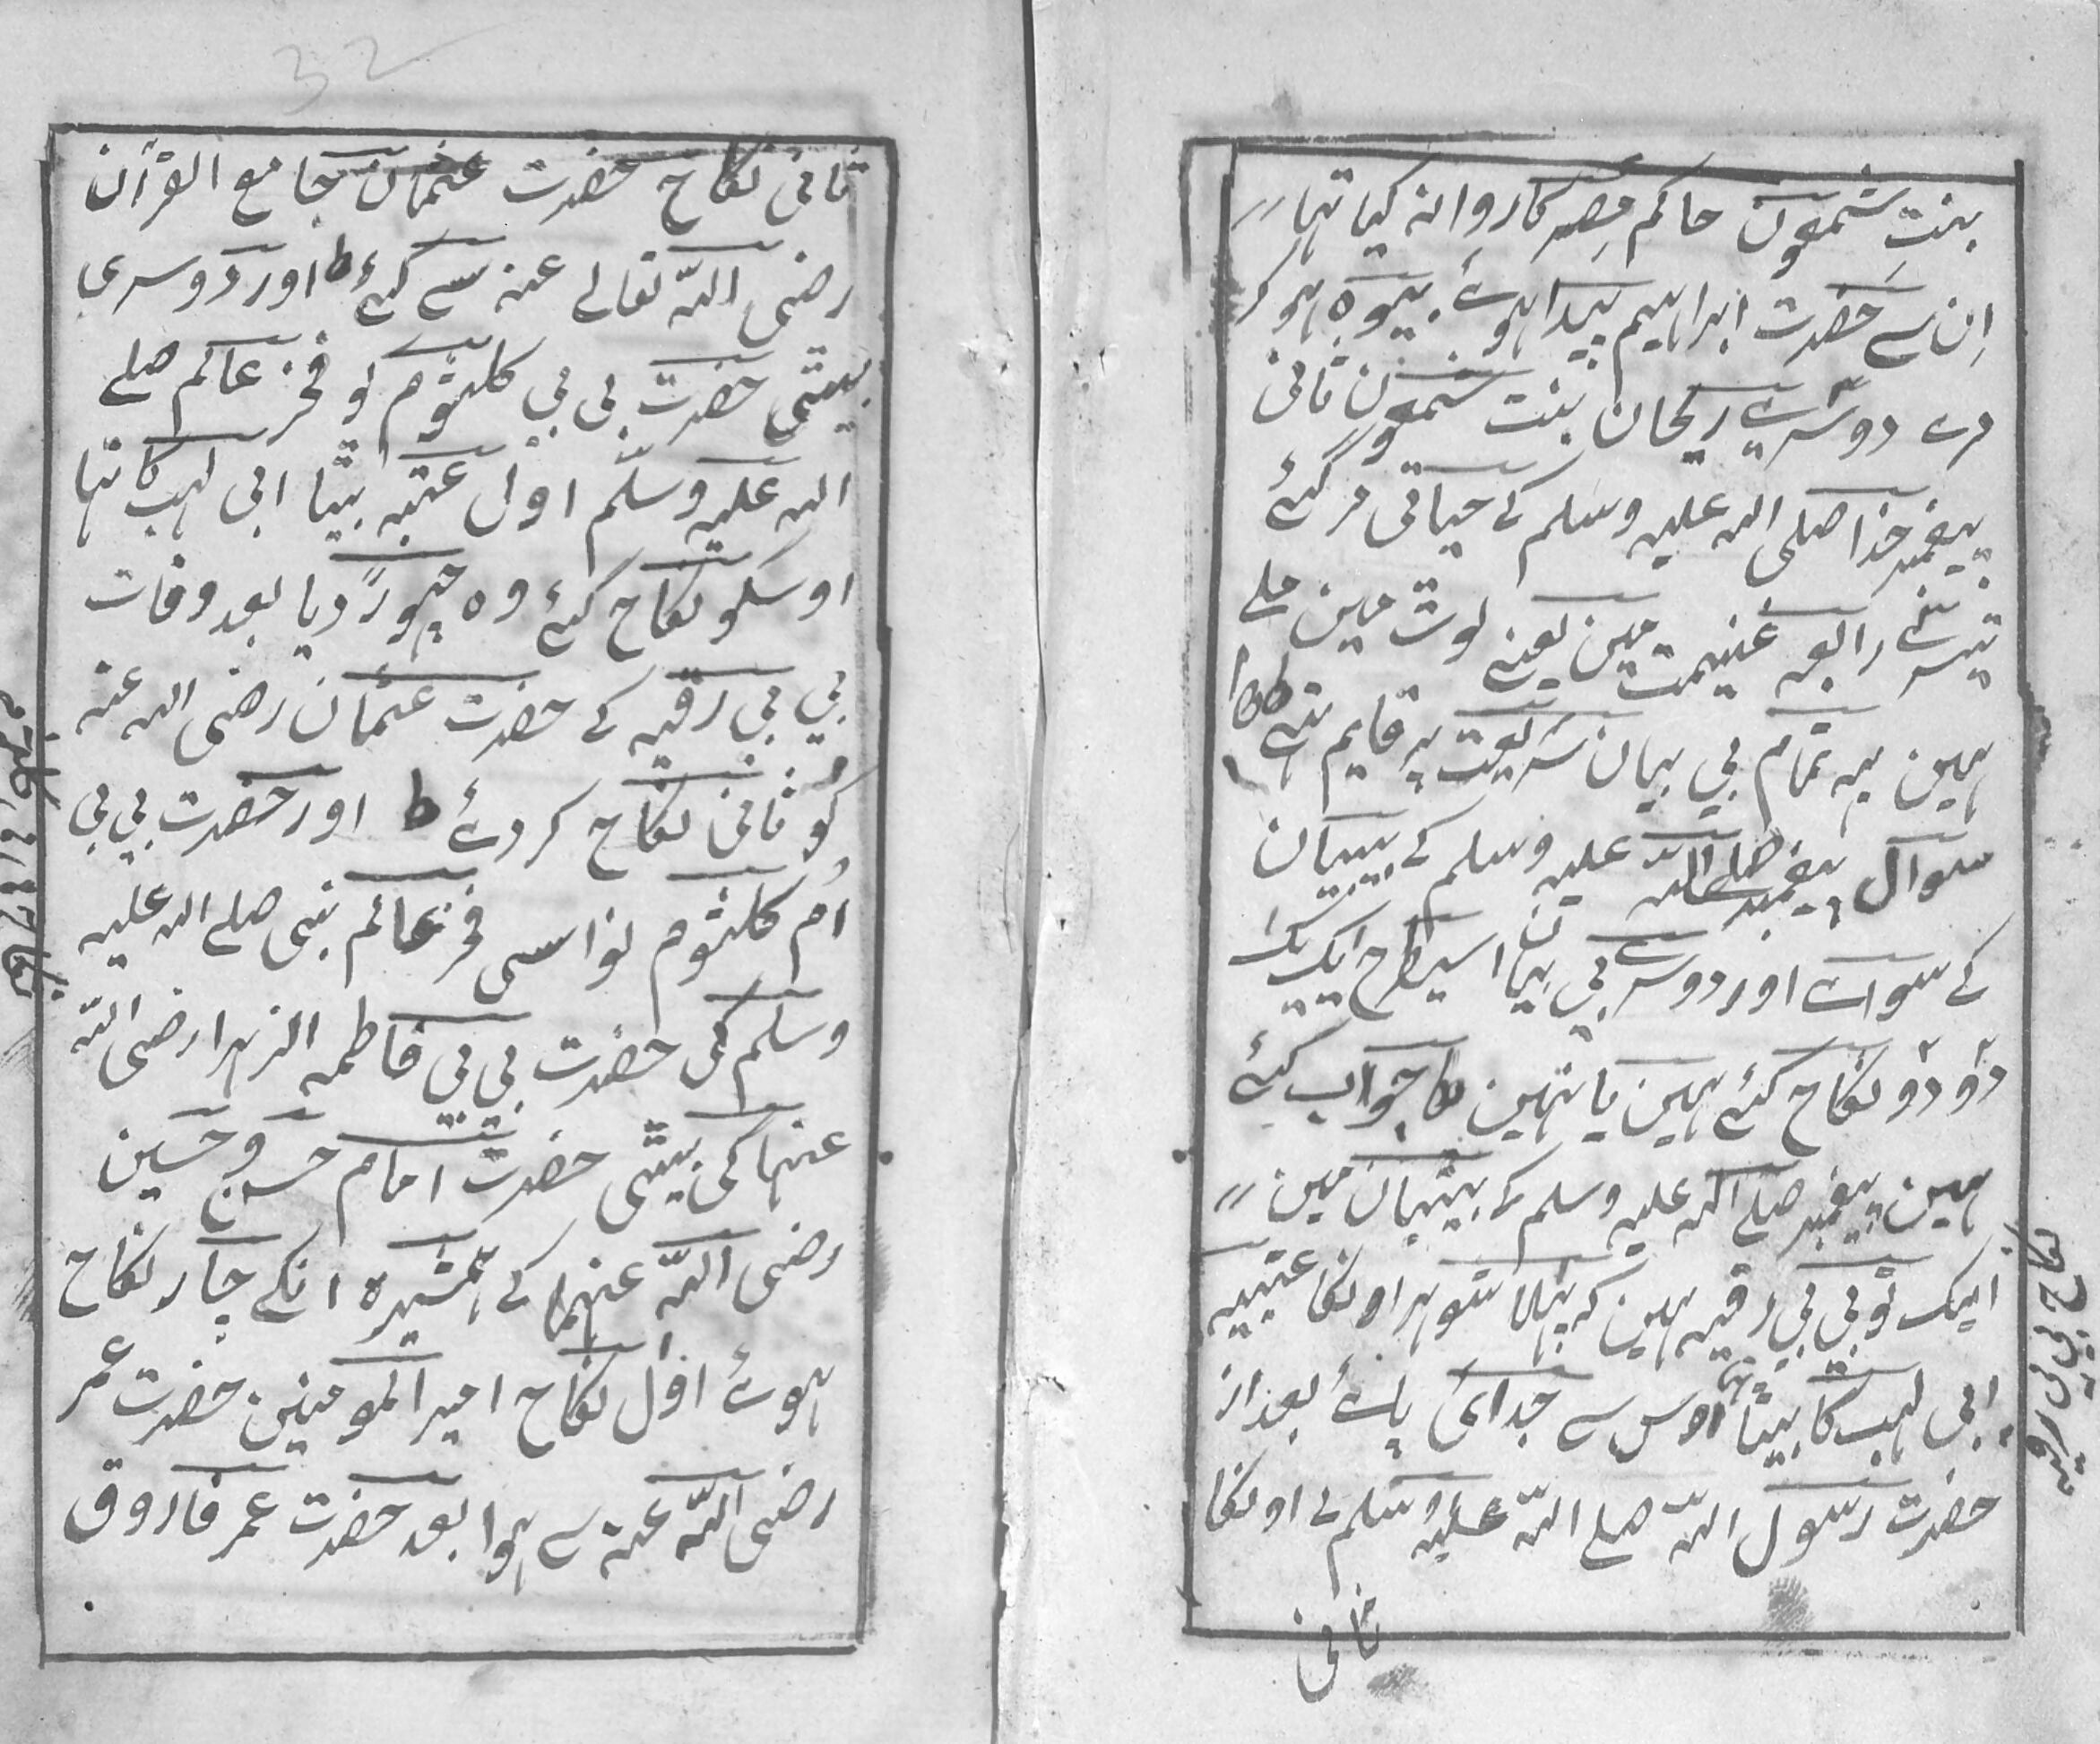 بنتِ شمعون حاکم مِصر کا روانہ کیا تہا //
اِن سے حَضرت ابراہیم پیدا ہوئے بیوہ ہو کر
مرے دوسرے ریحان بنت شمعون ثانی
پیغمبر خدا صلی اللہ علیہ وسلم کے حیاتی مر گئے
تیسرے رابعہ غنیمت مین یعنے لوٹ مین ملے
ہین یہ تمام بی بیان شریعت پر قایم تہے ط
سوال پیغمبر صلے اللہ علیہ وسلم کے بیبیان
کے سواے اور دوسرے بی بیان اسیطرح ایک یک
دوؔ دوؔ نکاح کئے ہین یا نہین ط جواب کئے
ہین پیغمبر صلے اللہ علیہ وسلم کے بیٹیان مین //
ایک تو بی بی رقیہ ہین کہ پہلا شوہر اونکا عتیبہ
ابی لہب کا بیٹا تہا اوس سے جدائی پاے بعد از
حضرت رسول اللہ صلے اللہ علیہ وسلم نے اونکا
ثانی
نکاح بی بی رقیہ
32
ثانی نکاح حضرت عثمان جامع القرآن
رضی اللہ تعالے عنہ سے کئے ط اور دوسری
بیٹی حضرت بی بی کلثوم کو فخر عالم صلے
اللہ علیہ وسلّم اول عتبہ بیٹا ابی لہب کا تہا
اوسکو نکاح کئے وہ چہوڑ دیا بعد وفات
بی بی رقیہ کے حضرت عثمان رضی اللہ عنہ
کو ثانی نکاح کر دئے ط اور حضرت بی بی
اُم کلثوم نواسی فخر عالم نبی صلے اللہ علیہ
وسلم کی حضرت بی بی فاطمہ الزہرا رضی اللہ
عنہا کی بیٹی حضرت امام حسن و حسین
رضی اللہ عنہما کے ہمشیرہ انکے چار نکاح
ہوئے اوّل نکاح امیر المومنین حضرت عمر
رضی اللہ عنہ سے ہوا بعد حضرت عمر فاروق